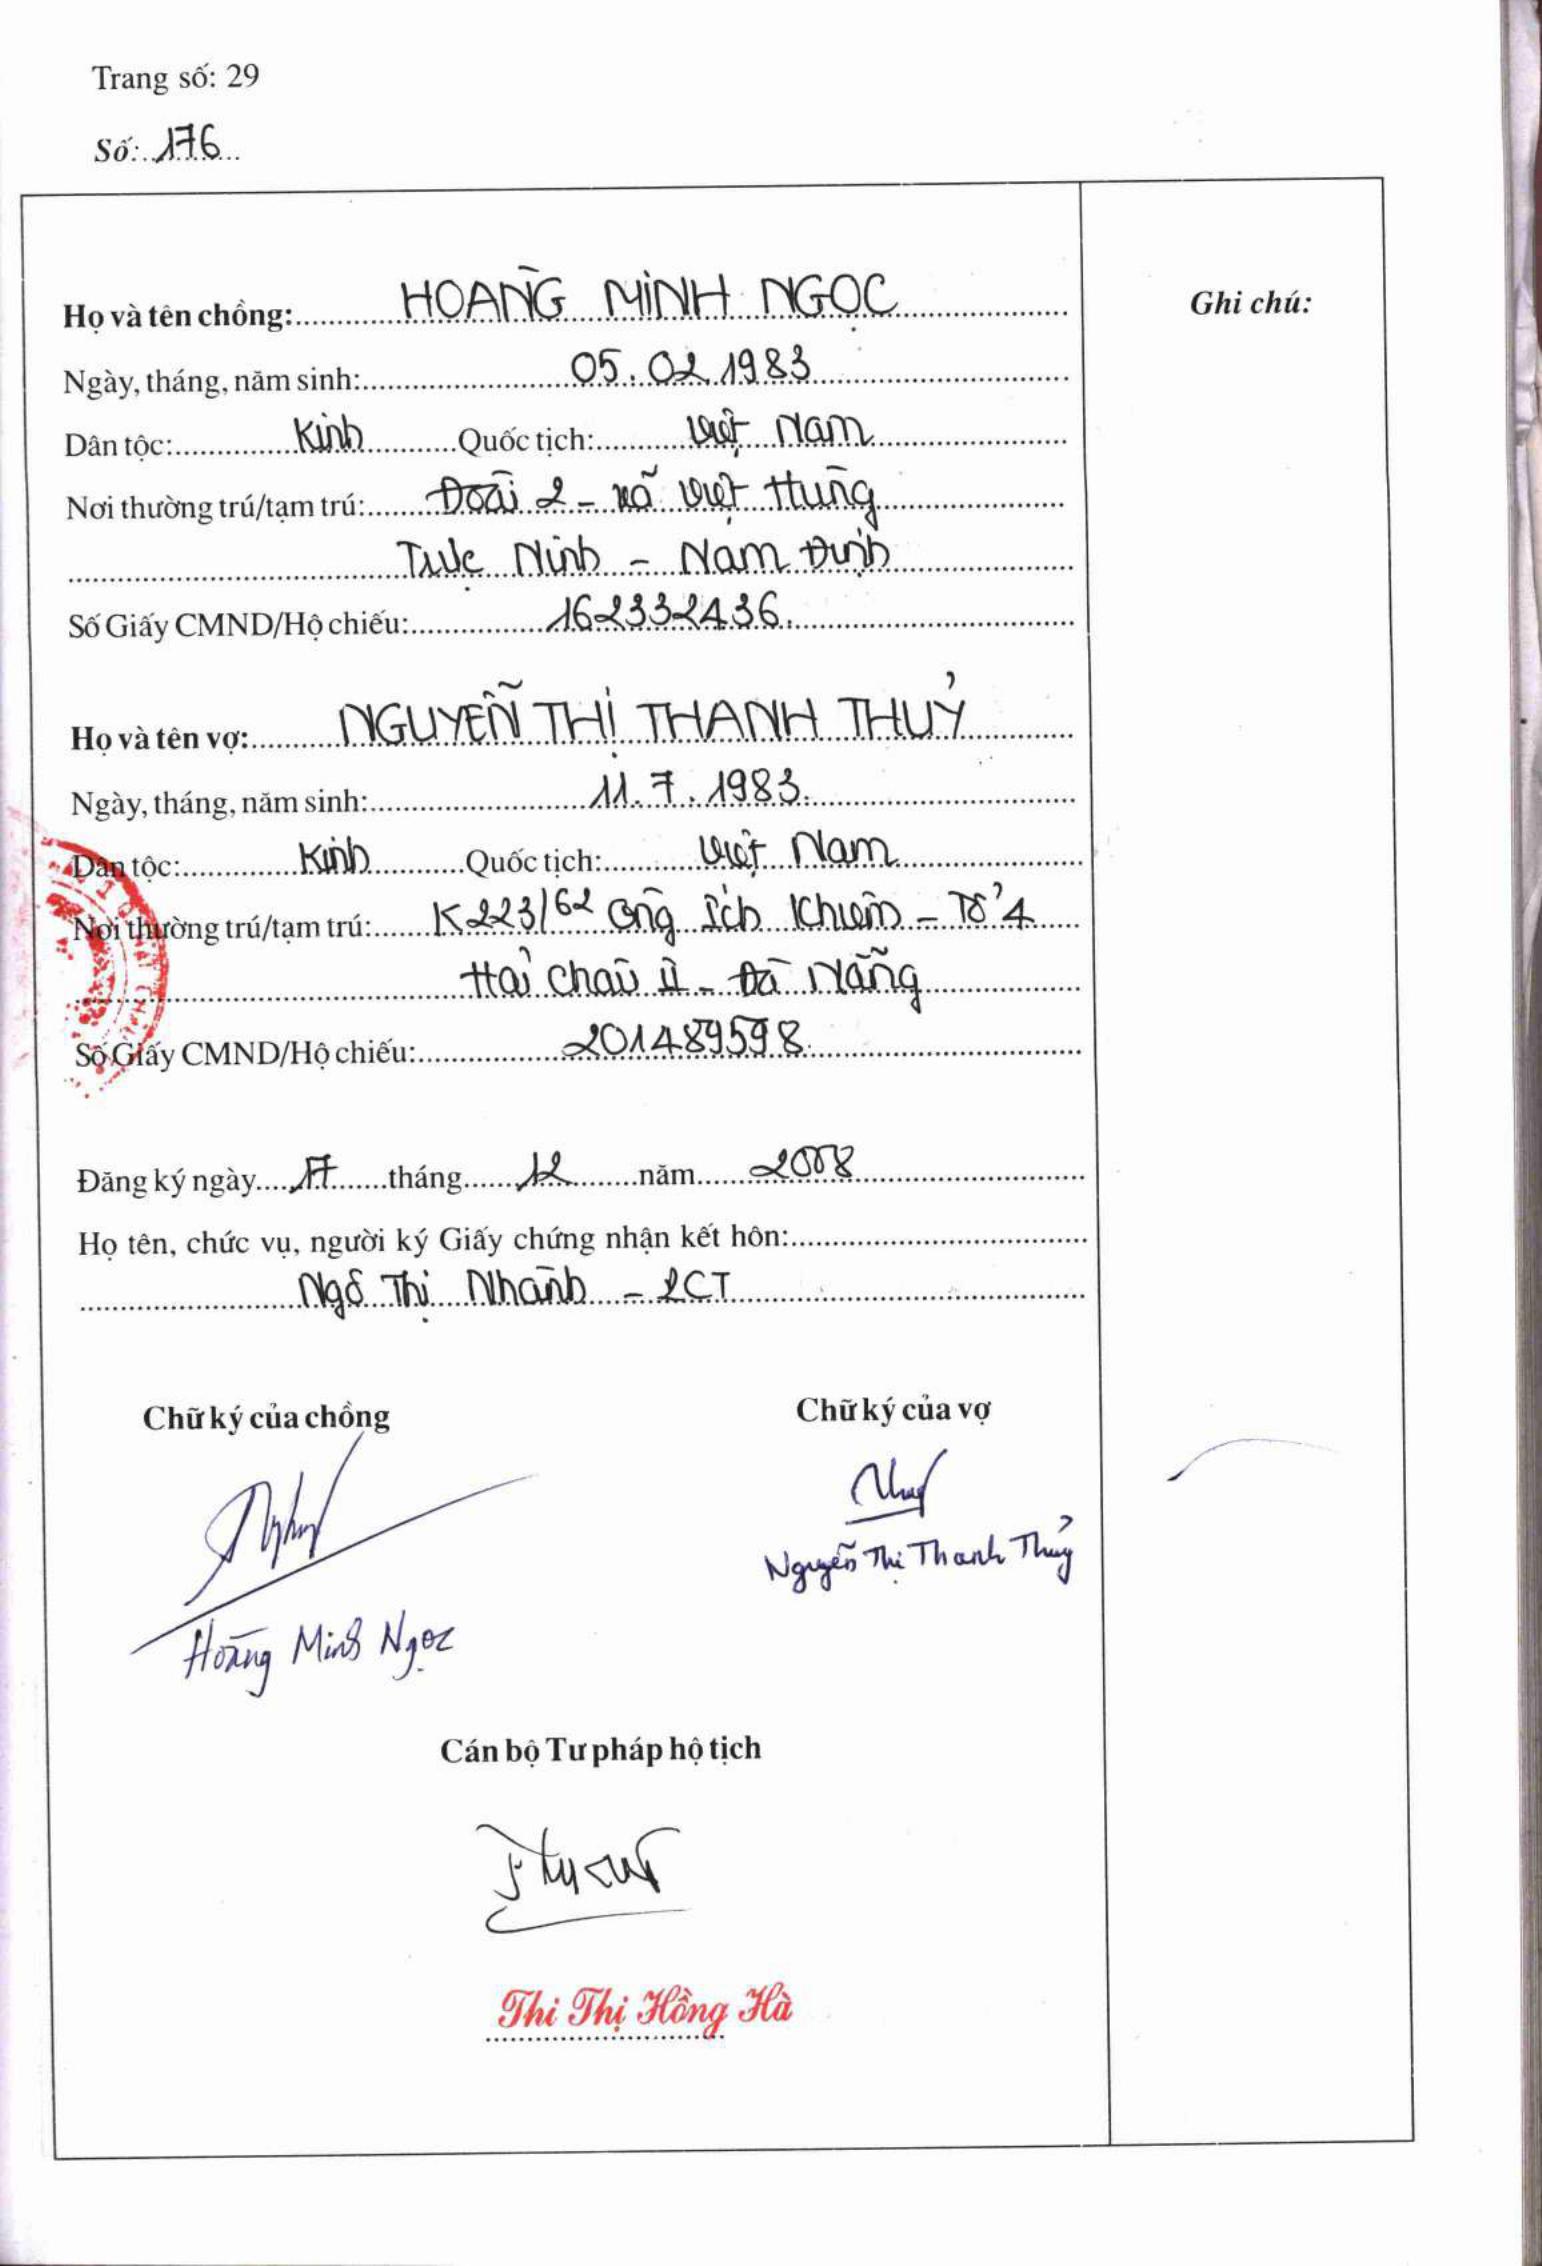 Trang số: 29
Số: 176
Họ và tên chồng: HOÀNG MINH NGỌC
Ghi chú:
Ngày, tháng, năm sinh: 05.02.1983
Dân tộc: Kinh Quốc tịch: Việt Nam
Nơi thường trú/tạm trú: Đoài 2 - xã Việt Hùng
Trực Ninh - Nam Định
Số Giấy CMND/Hộ chiếu: 162332436.
Họ và tên vợ: NGUYỄN THỊ THANH THUỶ
Ngày, tháng, năm sinh: 11.7.1983.
Dân tộc: Kinh Quốc tịch: Việt Nam
Nơi thường trú/tạm trú: K223/62 Ông Ích Khiêm - Tổ 4
Hải Châu II - Đà Nẵng
Số Giấy CMND/Hộ chiếu: 201489598.
Đăng ký ngày 17 tháng 12 năm 2008
Họ tên, chức vụ, người ký Giấy chứng nhận kết hôn:
Ngô Thị Nhành - PCT
Chữ ký của chồng Chữ ký của vợ
Nguyễn Thị Thanh Thủy
Hoàng Minh Ngọc
Cán bộ Tư pháp hộ tịch
Thi Thị Hồng Hà